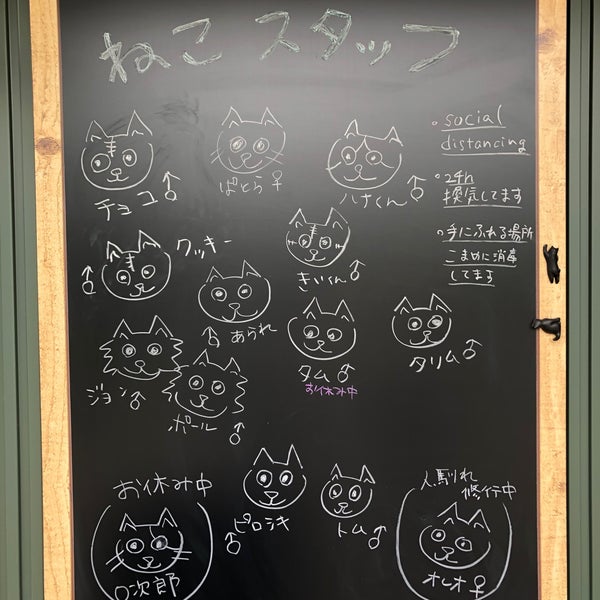 ねこスタッフ
チョコ♂
ぱとら♀
ハナくん♂
・social
distancing
・24h
換気してます
・手にふれる場所
こまめに消毒
してます
♂クッキー
きいくん♂
♂あられ
タム♂
お休み中
タリム♂
ジョン♂
ポール♂
お休み中
次郎
♂ピロシキ
トム♂
人馴れ
修行中
オレオ♀